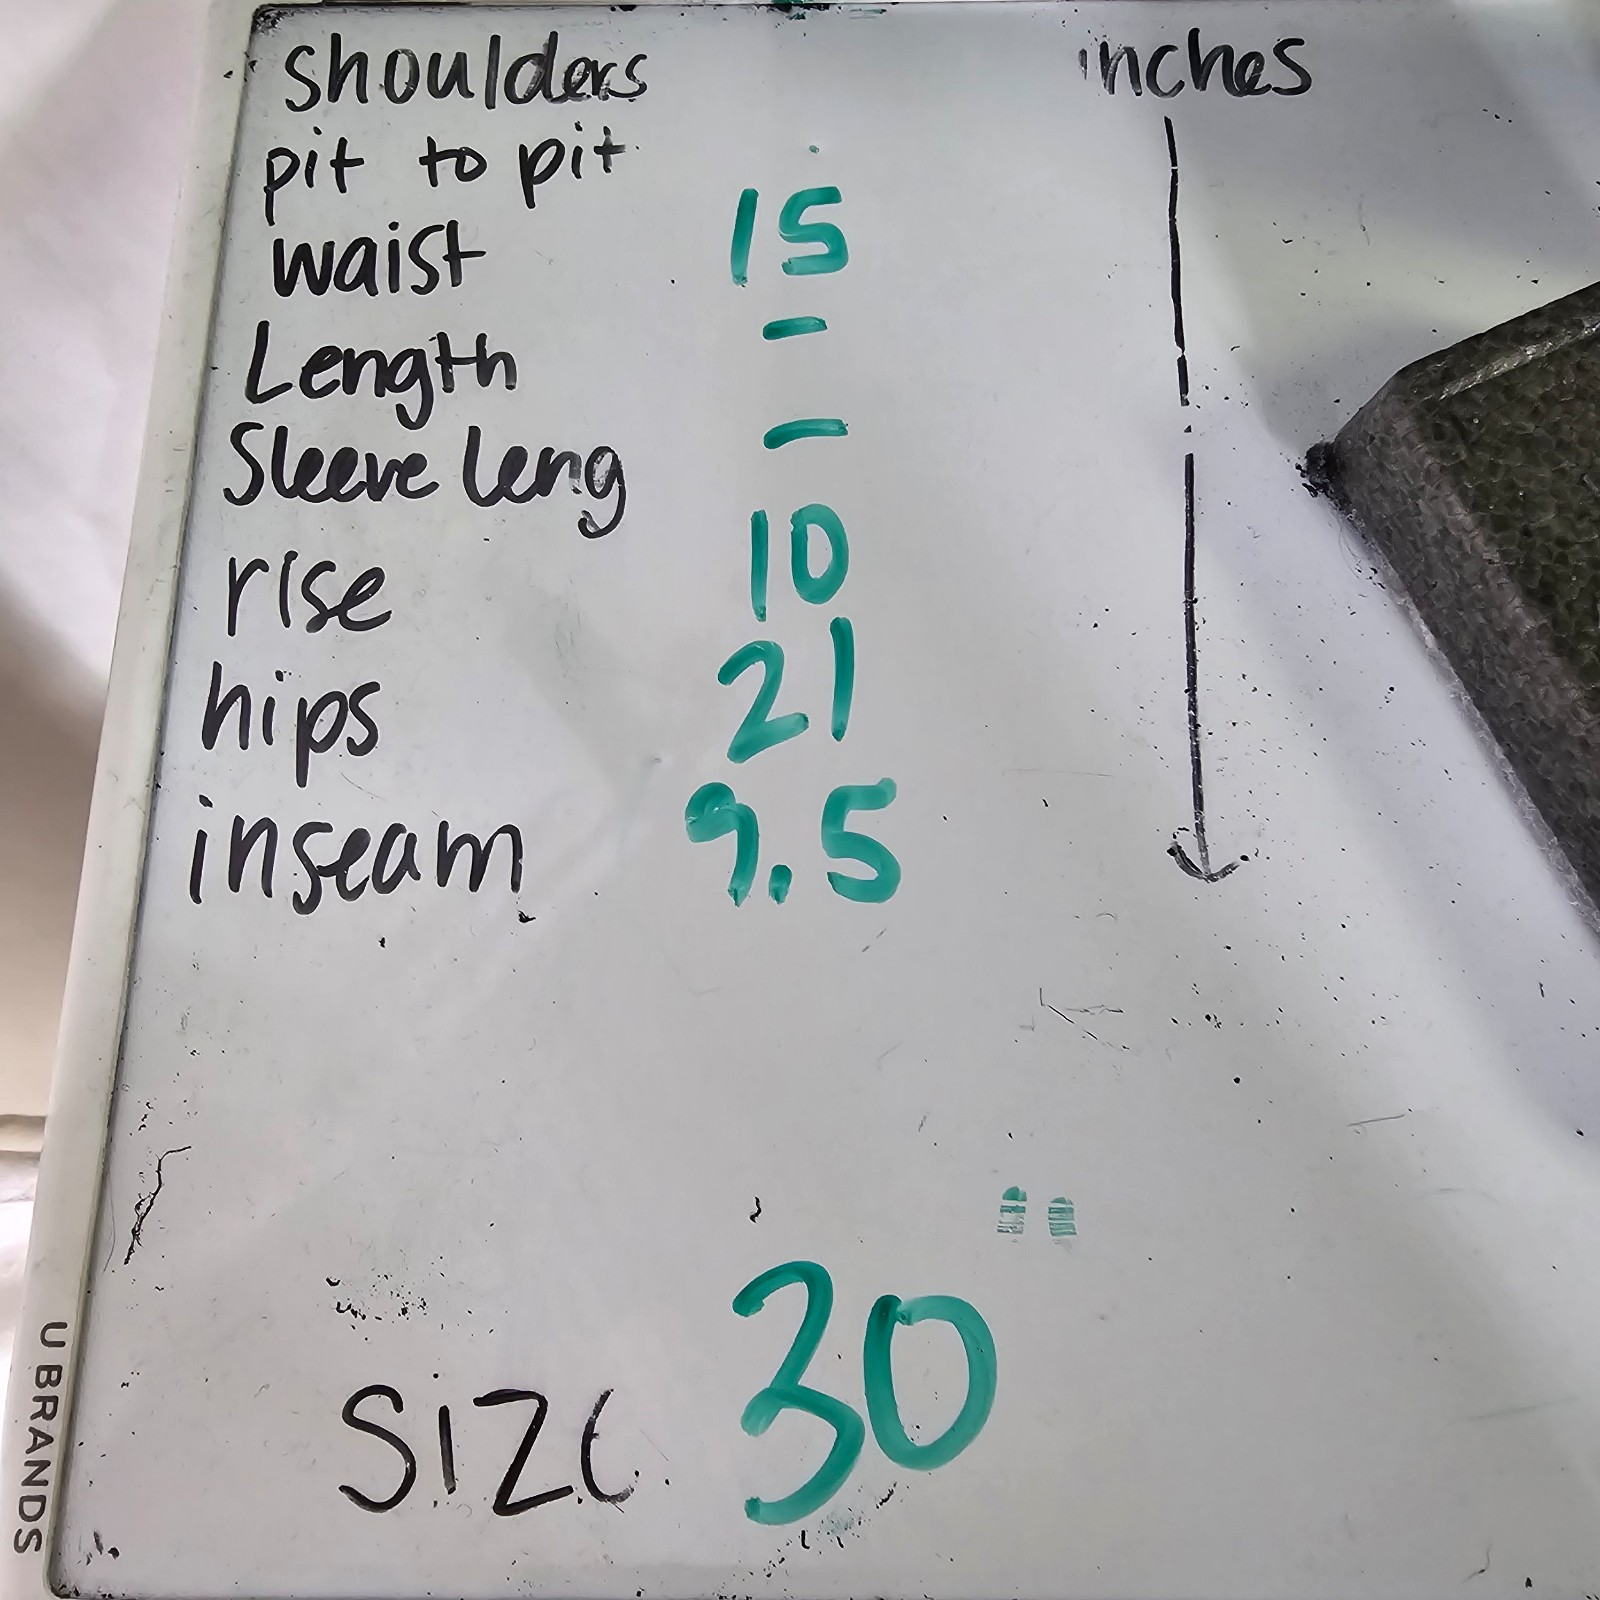 shoulders inches
pit to pit
waist 15
Length -
Sleeve leng -
rise 10
hips 21
inseam 9.5
size 30
U BRANDS